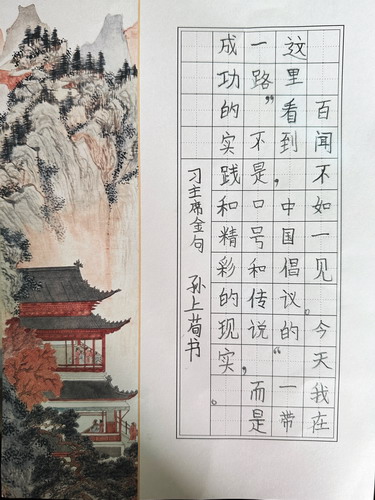 百闻不如一见。今天我在
这里看到，中国倡议的“一带
一路”不是口号和传说，而是
成功的实践和精彩的现实。
习主席金句 孙上荀书